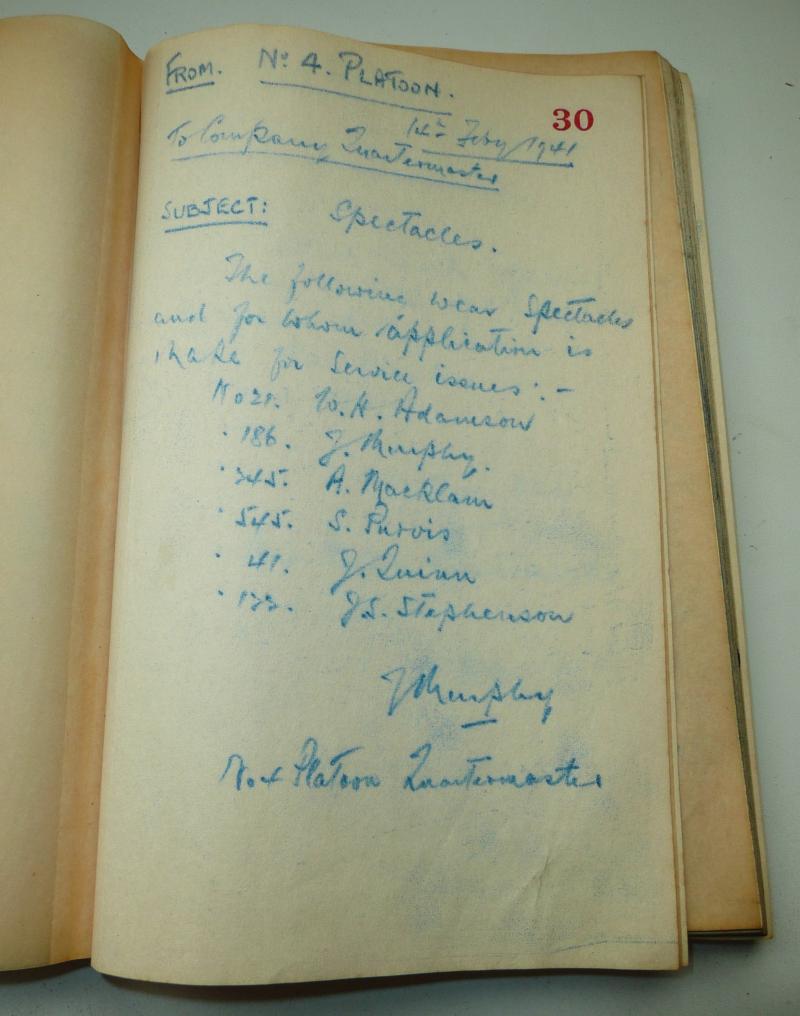 FROM. No. 4. PLATOON.
30
14th Feby 1941
To Company Quartermaster
SUBJECT: Spectacles.
The following wear Spectacles
and for whom application is
make for Service issues:-
No 21. W.H. Adamson
" 186. J. Murphy.
" 345. A. Macklam
" 545. S. Purvis
" 41. J. Quinn
" J.S. Stephenson
J Murphy
No 4 Platoon Quartermaster